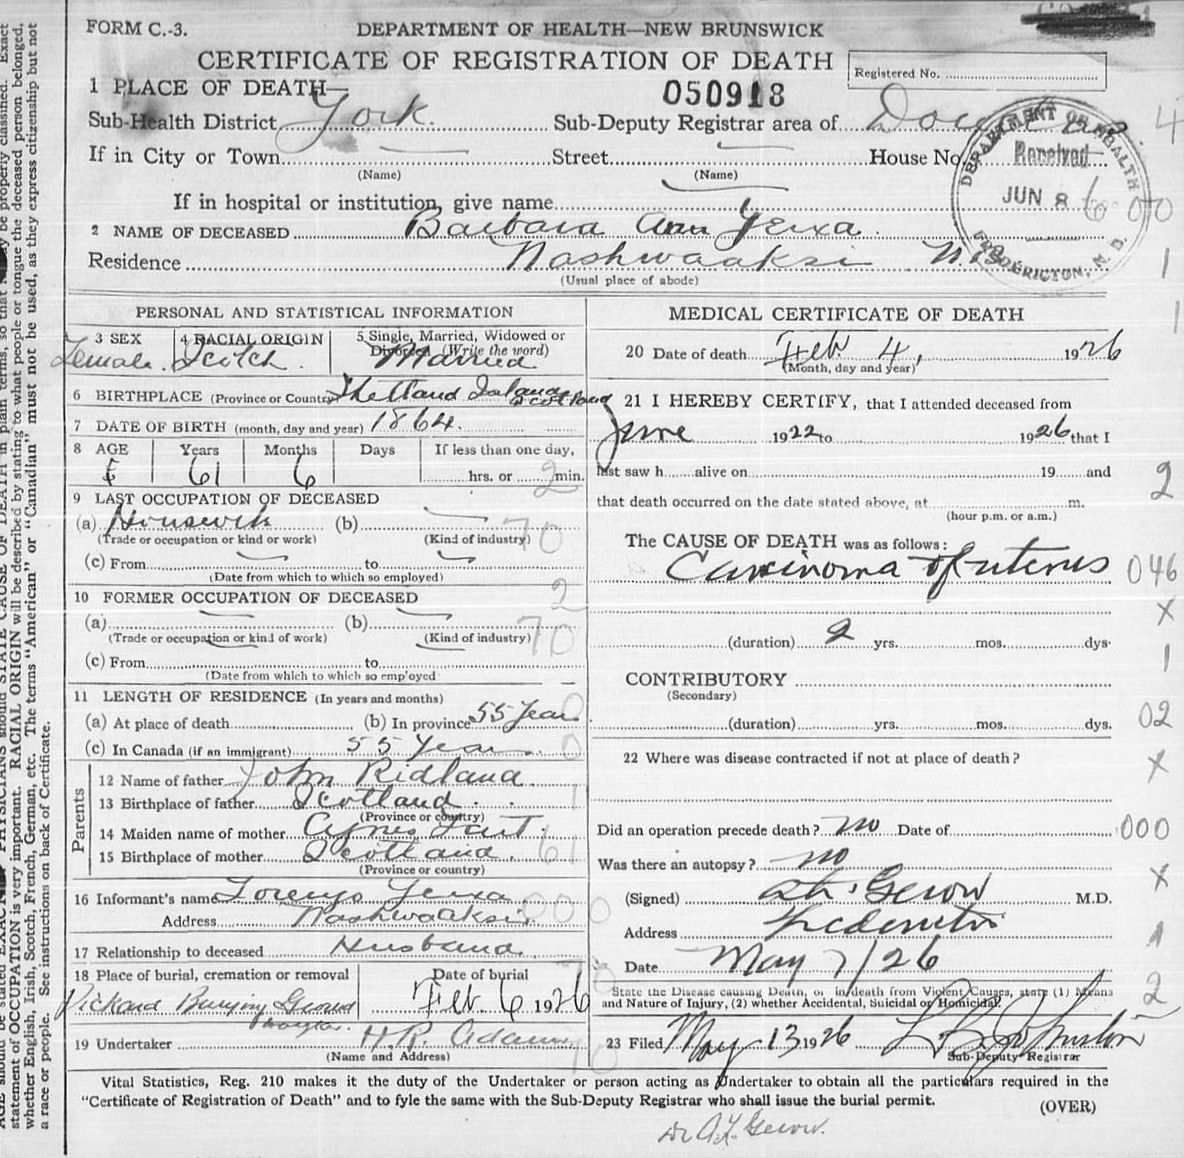 FORM C.-3.
DEPARTMENT OF HEALTH—NEW BRUNSWICK
CERTIFICATE OF REGISTRATION OF DEATH
Registered No.
1 PLACE OF DEATH—
050918
Sub-Health District York Sub-Deputy Registrar area of
If in City or Town Street House No.
(Name) (Name)
If in hospital or institution, give name
2 NAME OF DECEASED Barbara Ann Yerxa
Residence Nashwaaksi N.B.
(Usual place of abode)
DEPARTMENT OF HEALTH
Received
JUN 8
FREDERICTON, N. B.
PERSONAL AND STATISTICAL INFORMATION
3 SEX 4 RACIAL ORIGIN 5 Single, Married, Widowed or
Divorced (Write the word)
Female. Scotch. Married
6 BIRTHPLACE (Province or Country) Shetland Islands Scotland
7 DATE OF BIRTH (month, day and year) 1864.
8 AGE Years Months Days If less than one day,
61 6 hrs. or min.
9 LAST OCCUPATION OF DECEASED
(a) Housewife (b)
(Trade or occupation or kind or work) (Kind of industry)
(c) From to
(Date from which to which so employed)
10 FORMER OCCUPATION OF DECEASED
(a) (b)
(Trade or occupation or kind of work) (Kind of industry)
(c) From to
(Date from which to which so employed
11 LENGTH OF RESIDENCE (In years and months)
(a) At place of death (b) In province 55 Years
(c) In Canada (if an immigrant) 55 Years
Parents
12 Name of father John Ridland
13 Birthplace of father Scotland.
(Province or country)
14 Maiden name of mother Agnes
15 Birthplace of mother Scotland.
(Province or country)
16 Informant's name Yerxa
Address Nashwaaksis
17 Relationship to deceased Husband.
18 Place of burial, cremation or removal Date of burial
Pickard Burying Ground Feb. 6 1926
Douglas.
19 Undertaker H.R. Adams
(Name and Address)
MEDICAL CERTIFICATE OF DEATH
20 Date of death Feb. 4, 1926
(Month, day and year)
21 I HEREBY CERTIFY, that I attended deceased from
June 1922 to 1926 that I
last saw h alive on 19 and
that death occurred on the date stated above, at m.
(hour p.m. or a.m.)
The CAUSE OF DEATH was as follows:
Carcinoma of uterus
(duration) 2 yrs. mos. dys.
CONTRIBUTORY
(Secondary)
(duration) yrs. mos. dys.
22 Where was disease contracted if not at place of death?
Did an operation precede death? no Date of
Was there an autopsy? no
(Signed) Gerow M.D.
Address Fredericton
Date May 7/26
State the Disease causing Death, or in death from Violent Causes, state (1) Means
and Nature of Injury, (2) whether Accidental, Suicidal or Homicidal.
23 Filed May 13 1926 Johnston
Sub-Deputy Registrar
Vital Statistics, Reg. 210 makes it the duty of the Undertaker or person acting as Undertaker to obtain all the particulars required in the
"Certificate of Registration of Death" and to fyle the same with the Sub-Deputy Registrar who shall issue the burial permit.
(OVER)
Dr A.L. Gerow.
4
00
1
1
2
046
X
1
02
X
000
X
1
2
statement of OCCUPATION is very important. RACIAL ORIGIN will be described by stating to what people or tongue the deceased person belonged,
whether English, Irish, Scotch, French, German, etc. The terms "American" or "Canadian" must not be used, as they express citizenship but not
a race or people. See instructions on back of Certificate.